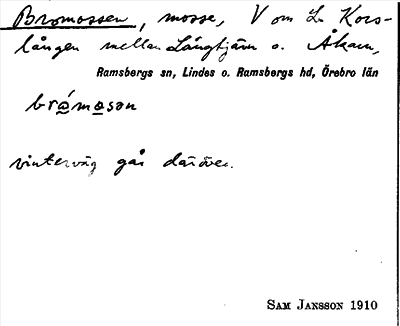 Bromossen, mosse, V om L. Kors-
lången mellan Långtjärn o. Åkarn,
Ramsbergs sn, Lindes o. Ramsbergs hd, Örebro län
brómosən
vinterväg går däröver.
SAM JANSSON 1910